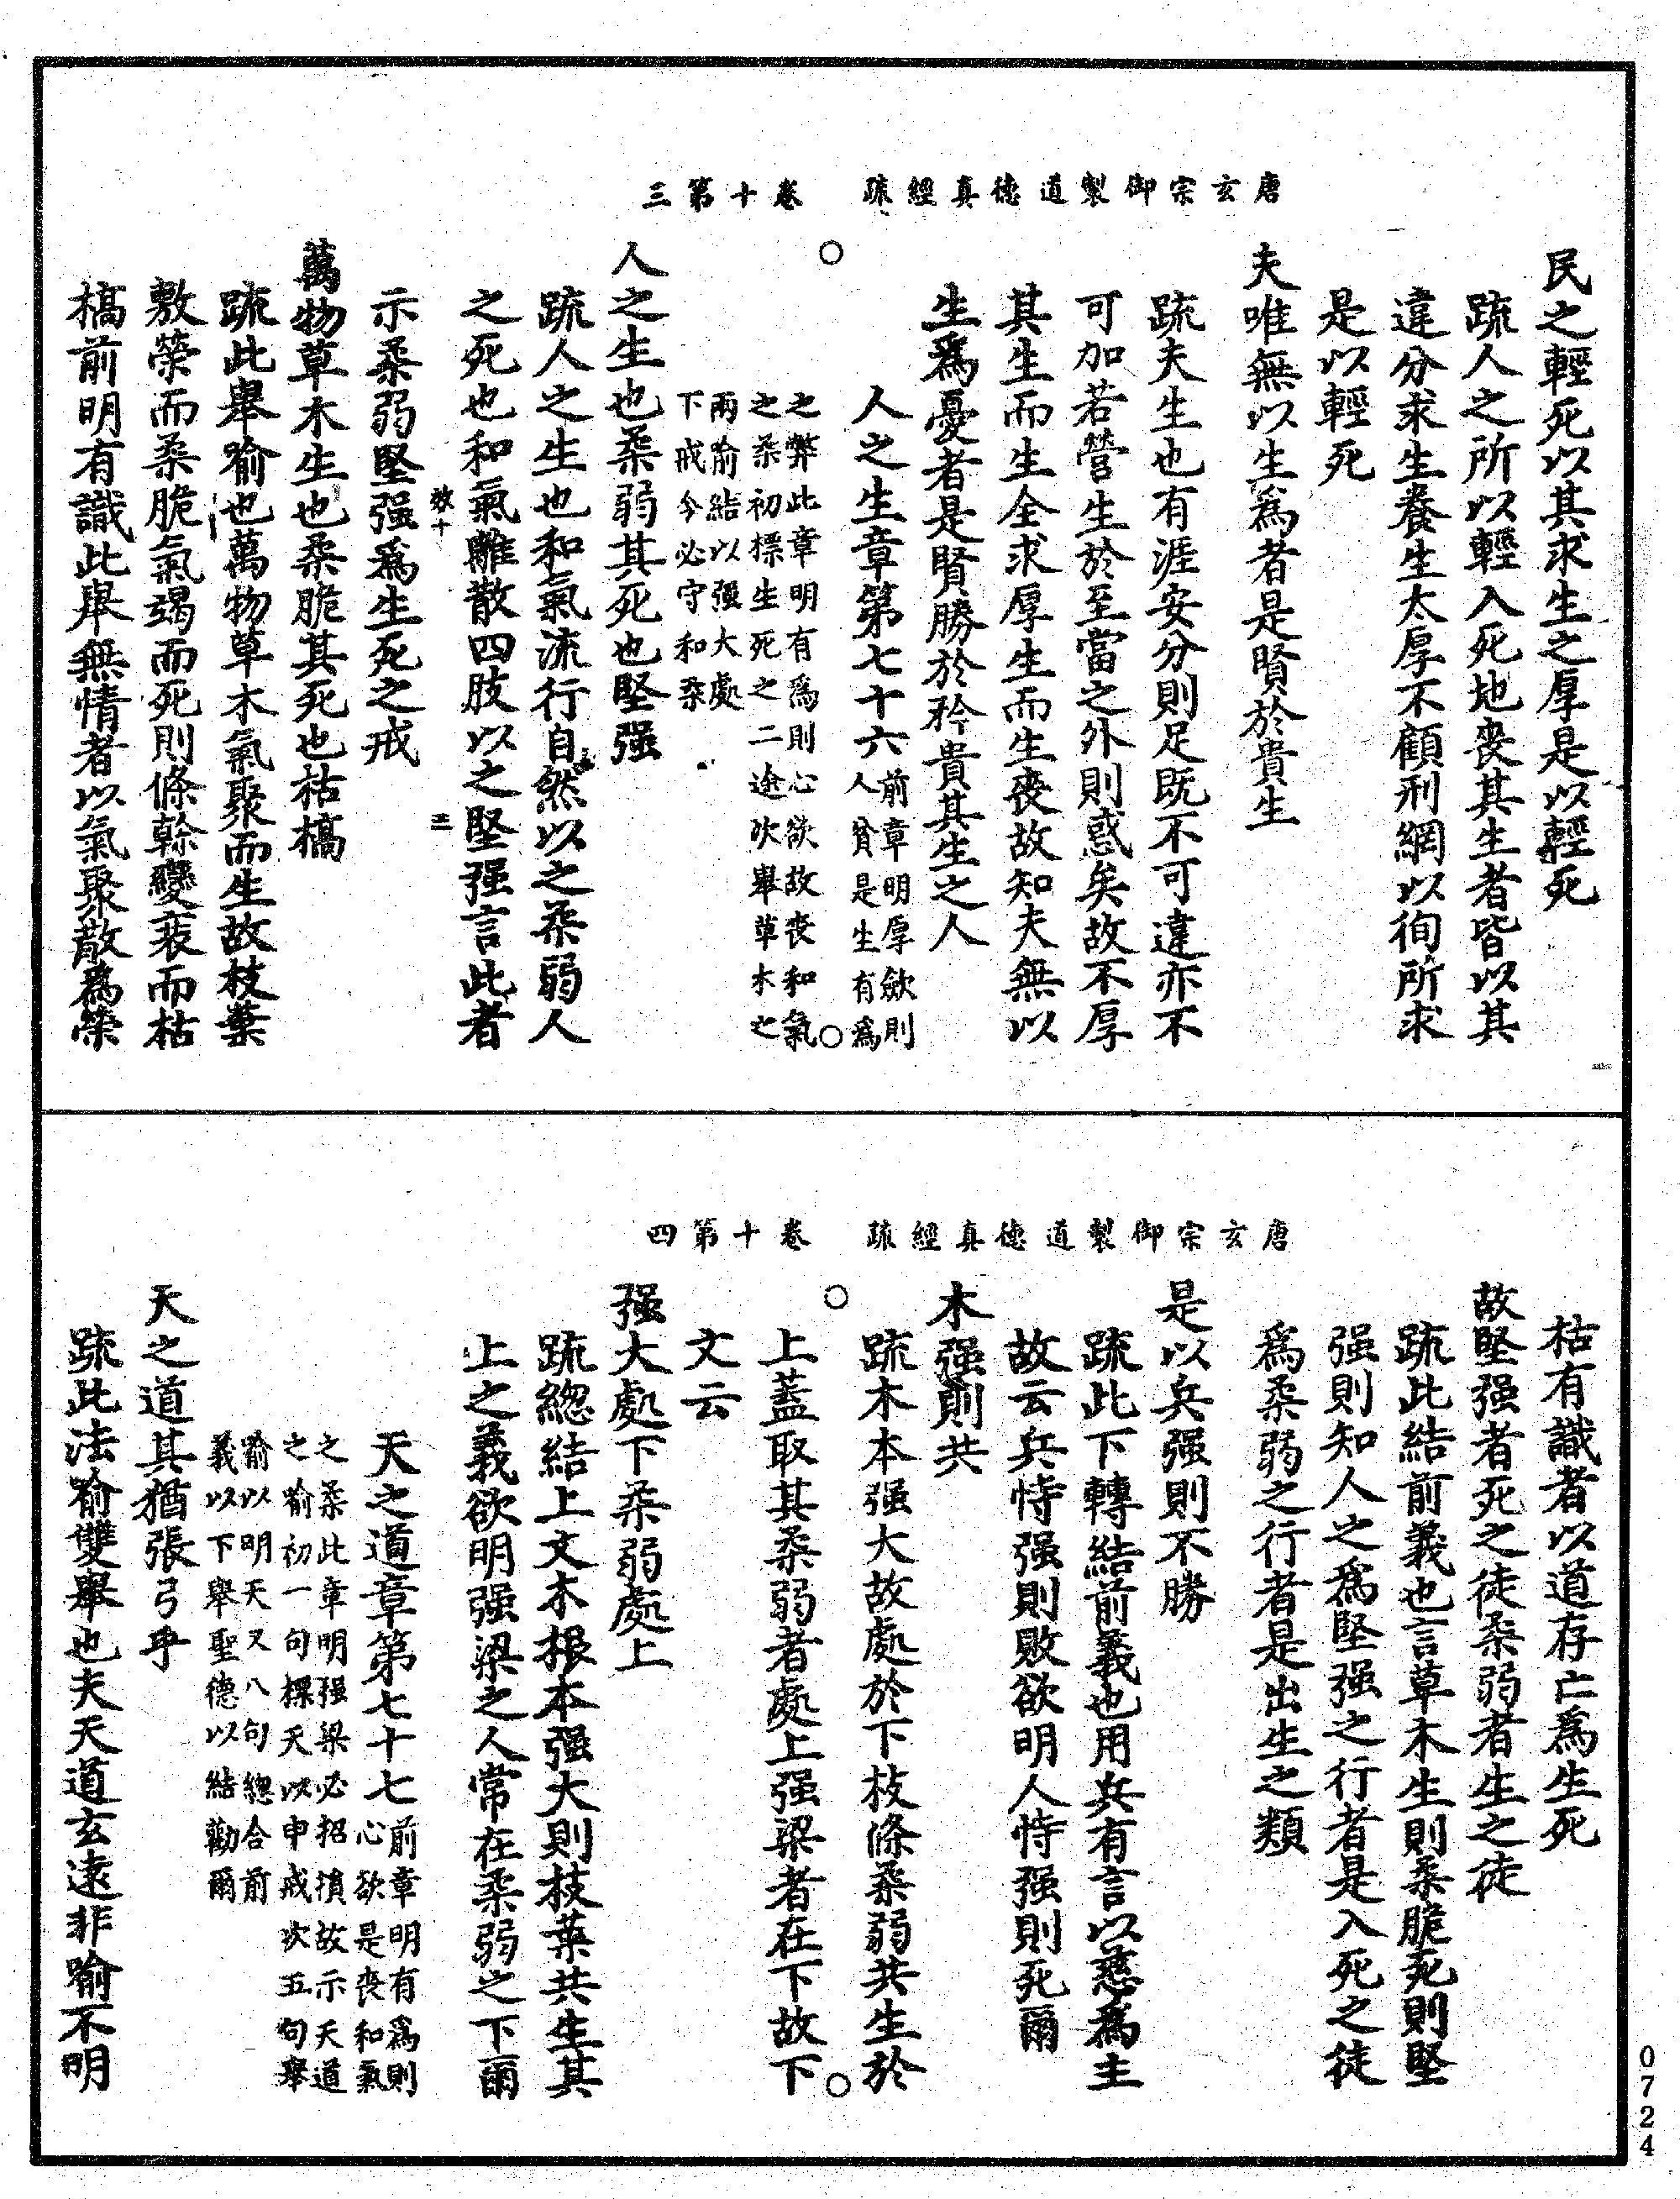 唐玄宗御製道德真經疏　卷十第三
民之輕死以其求生之厚是以輕死
疏人之所以輕入死地喪其生者皆以其
違分求生養生太厚不顧刑網以徇所求
是以輕死
夫唯無以生爲者是賢於貴生
疏夫生也有涯安分則足既不可違亦不
可加若營生於至當之外則惑矣故不厚
其生而生全求厚生而生喪故知夫無以
生爲憂者是賢勝於矜貴其生之人
人之生章第七十六
前章明厚斂則
人貧是生有爲
之弊此章明有爲則心欲故喪和氣
之柔初標生死之二途次舉草木之
兩喻結以强大處
下戒令必守和柔
人之生也柔弱其死也堅强
疏人之生也和氣流行自然以之柔弱人
之死也和氣離散四肢以之堅强言此者
效十　三
示柔弱堅强爲生死之戒
萬物草木生也柔脆其死也枯槁
疏此舉喻也萬物草木氣聚而生故枝葉
敷榮而柔脆氣竭而死則條幹變衰而枯
槁前明有識此舉無情者以氣聚散爲榮
唐玄宗御製道德真經疏　卷十第四
枯有識者以道存亡爲生死
故堅强者死之徒柔弱者生之徒
疏此結前義也言草木生則柔脆死則堅
强則知人之爲堅强之行者是入死之徒
爲柔弱之行者是出生之類
是以兵强則不勝
疏此下轉結前義也用兵有言以慈爲主
故云兵恃强則敗欲明人恃强則死爾
木强則共
疏木本强大故處於下枝條柔弱共生於
上蓋取其柔弱者處上强梁者在下故下
文云
强大處下柔弱處上
疏總結上文木根本强大則枝葉共生其
上之義欲明强梁之人常在柔弱之下爾
天之道章第七十七
前章明有爲則
心欲是喪和氣
之柔此章明强梁必招損故示天道
之喻初一句標天以申戒次五句舉
喻以明天又八句總合前
義以下舉聖德以結勸爾
天之道其猶張弓乎
疏此法喻雙舉也夫天道玄遠非喻不明
0724